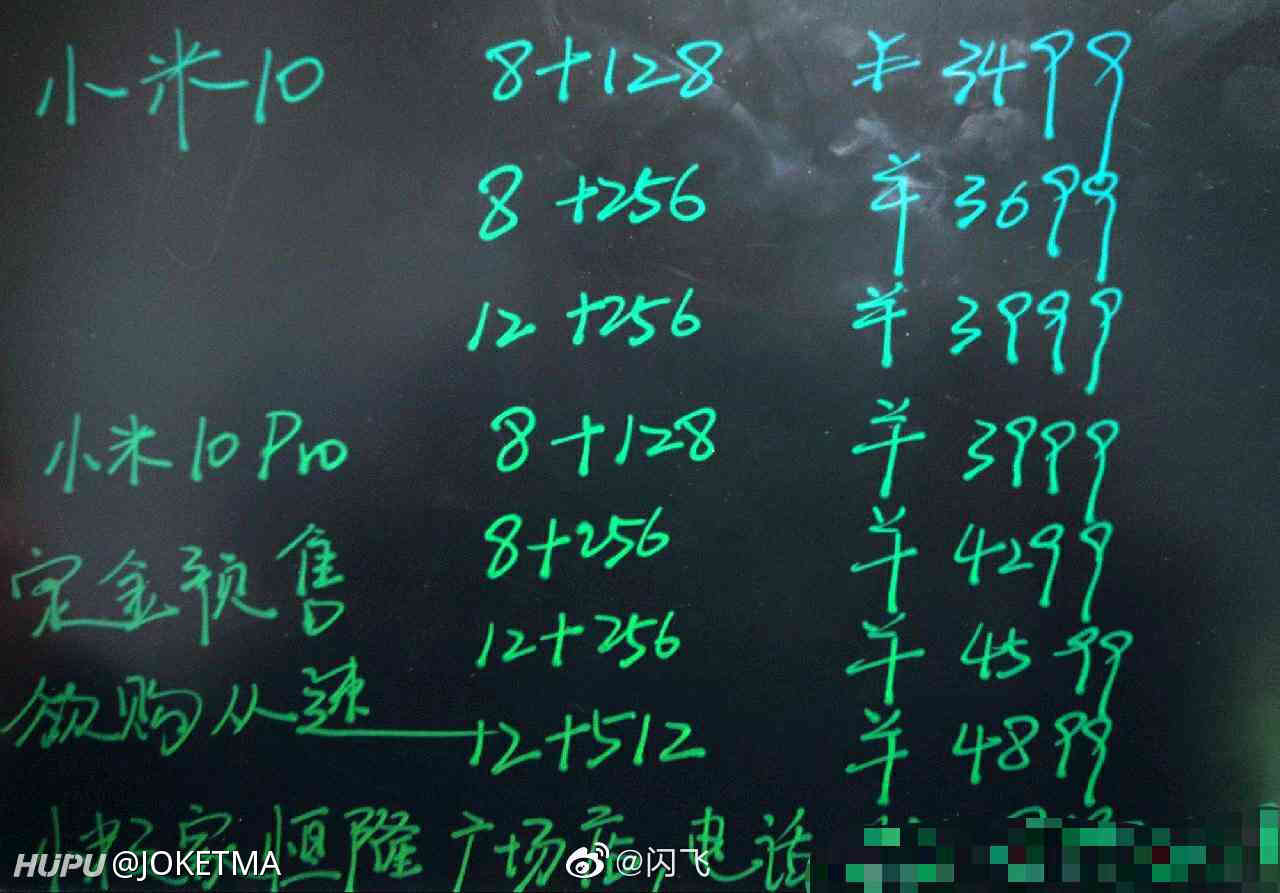 小米10 8+128 ¥3499
8+256 ¥3699
12+256 ¥3999
小米10 Pro 8+128 ¥3999
8+256 ¥4299
定金预售
12+256 ¥4599
欲购从速
12+512 ¥4899
小米之家恒隆广场店 电话
HUPU @JOKETMA
@闪飞